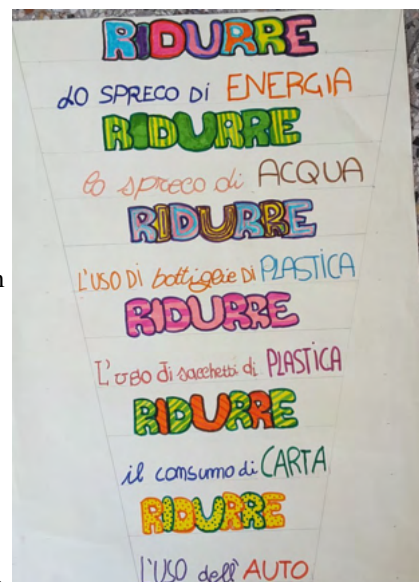 RIDURRE
LO SPRECO DI ENERGIA
RIDURRE
lo spreco di ACQUA
RIDURRE
L'USO DI bottiglie DI PLASTICA
RIDURRE
L'uso di sacchetti di PLASTICA
RIDURRE
il consumo di CARTA
RIDURRE
l'USO dell'AUTO